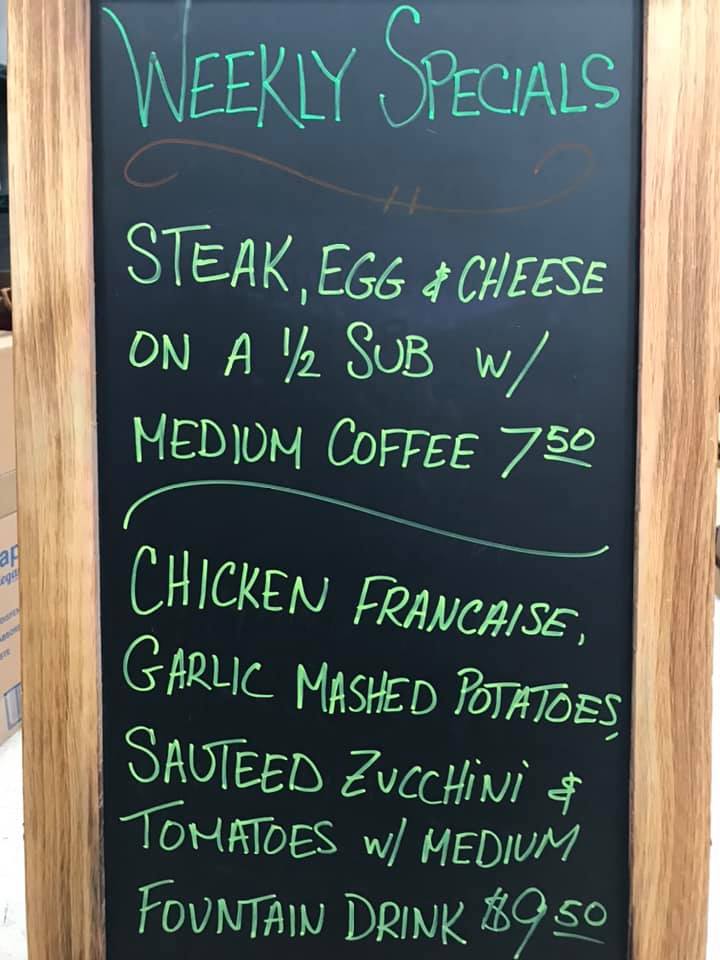 WEEKLY SPECIALS
STEAK, EGG & CHEESE
ON A 1/2 SUB W/
MEDIUM COFFEE 7 50
CHICKEN FRANCAISE,
GARLIC MASHED POTATOES,
SAUTEED ZUCCHINI &
TOMATOES W/ MEDIUM
FOUNTAIN DRINK $9 50